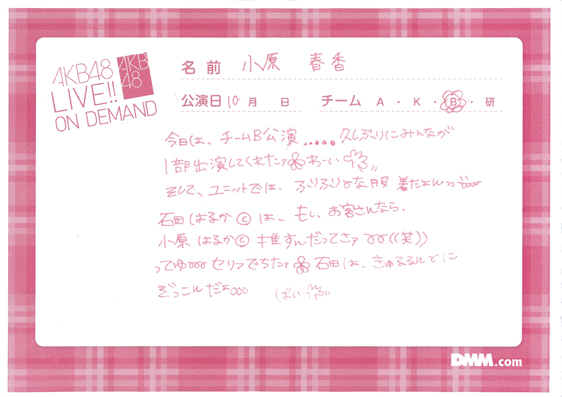 AKB48
LIVE!!
ON DEMAND
AKB
48
名前 小原 春香
公演日 10月 日 チーム A・K・B・研
今日は、チームB公演.....久しぶりにみんなが
1部出演してくれたァ わーい
そして、ユニットでは、ふりふりな服 着たょん
石田はるか©は、もし、お客さんなら、
小原はるか© 推すんだってさァ ((笑))
ってゆー セリフでちたァ 石田は、きゅるるんに
ぞっこんだょooo (ばい
DMM.com